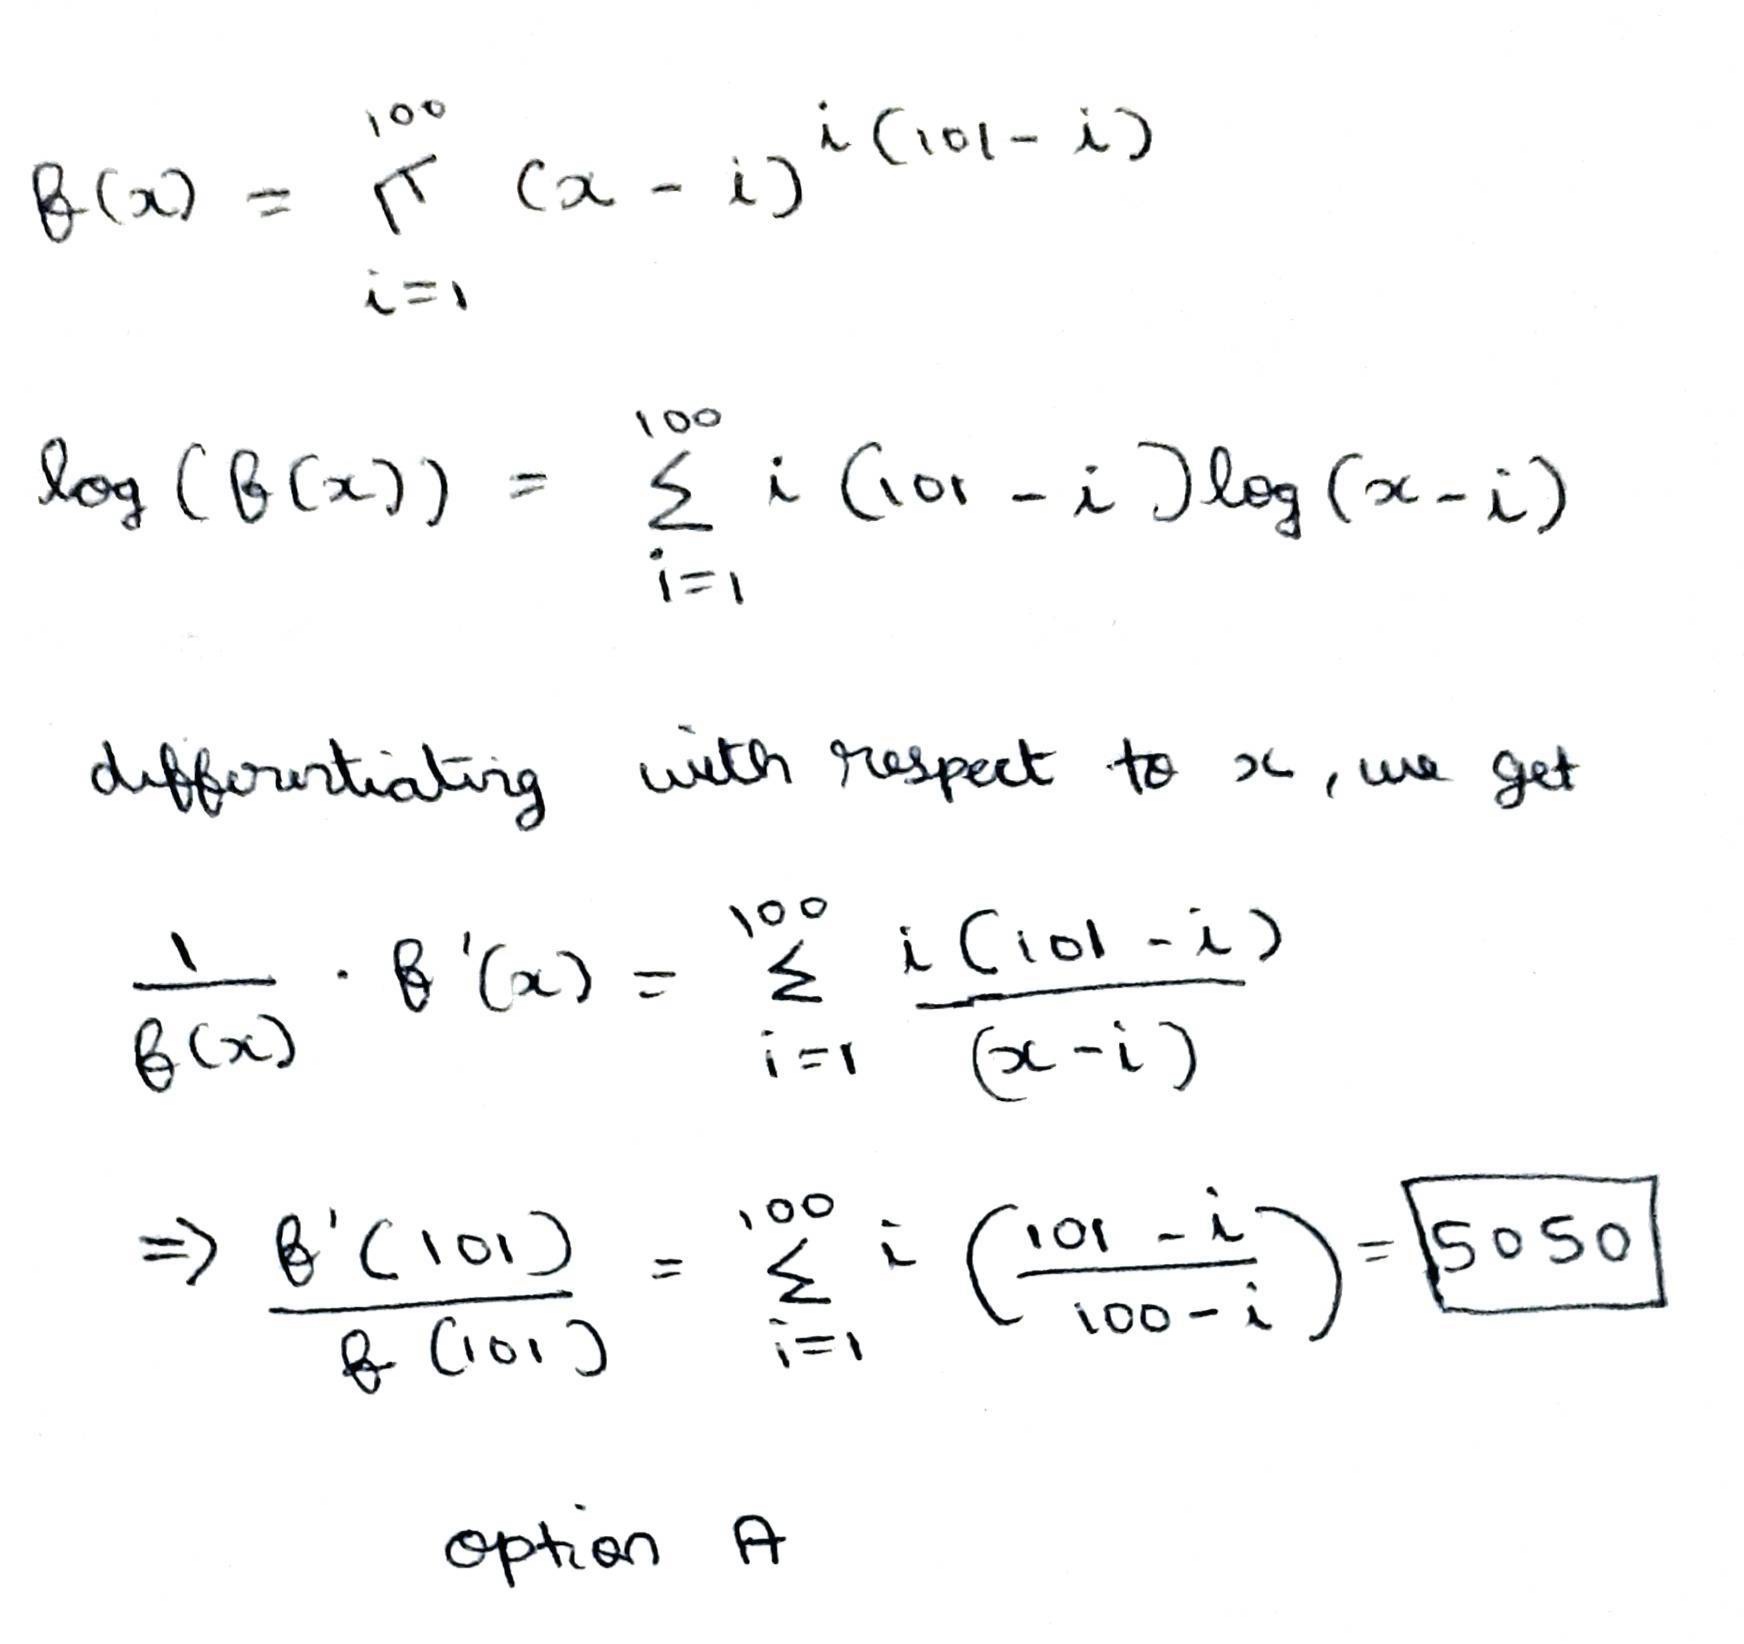 f(x) = ∏_{i=1}^{100} (x - i)^{i(101 - i)}
log(f(x)) = Σ_{i=1}^{100} i(101 - i) log(x - i)
differentiating with respect to x, we get
1/f(x) · f'(x) = Σ_{i=1}^{100} i(101 - i)/(x - i)
⇒ f'(101)/f(101) = Σ_{i=1}^{100} i((101 - i)/(100 - i)) = 5050
option A